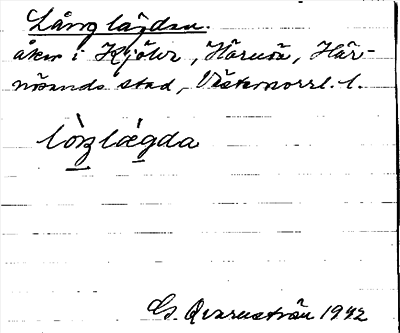 Långlägdan.
åker i Kjölvr, Härnön, Här-
nösands stad, Västernorrl. l.
lòŋlæ̀gda
G. Qvarnström 1942